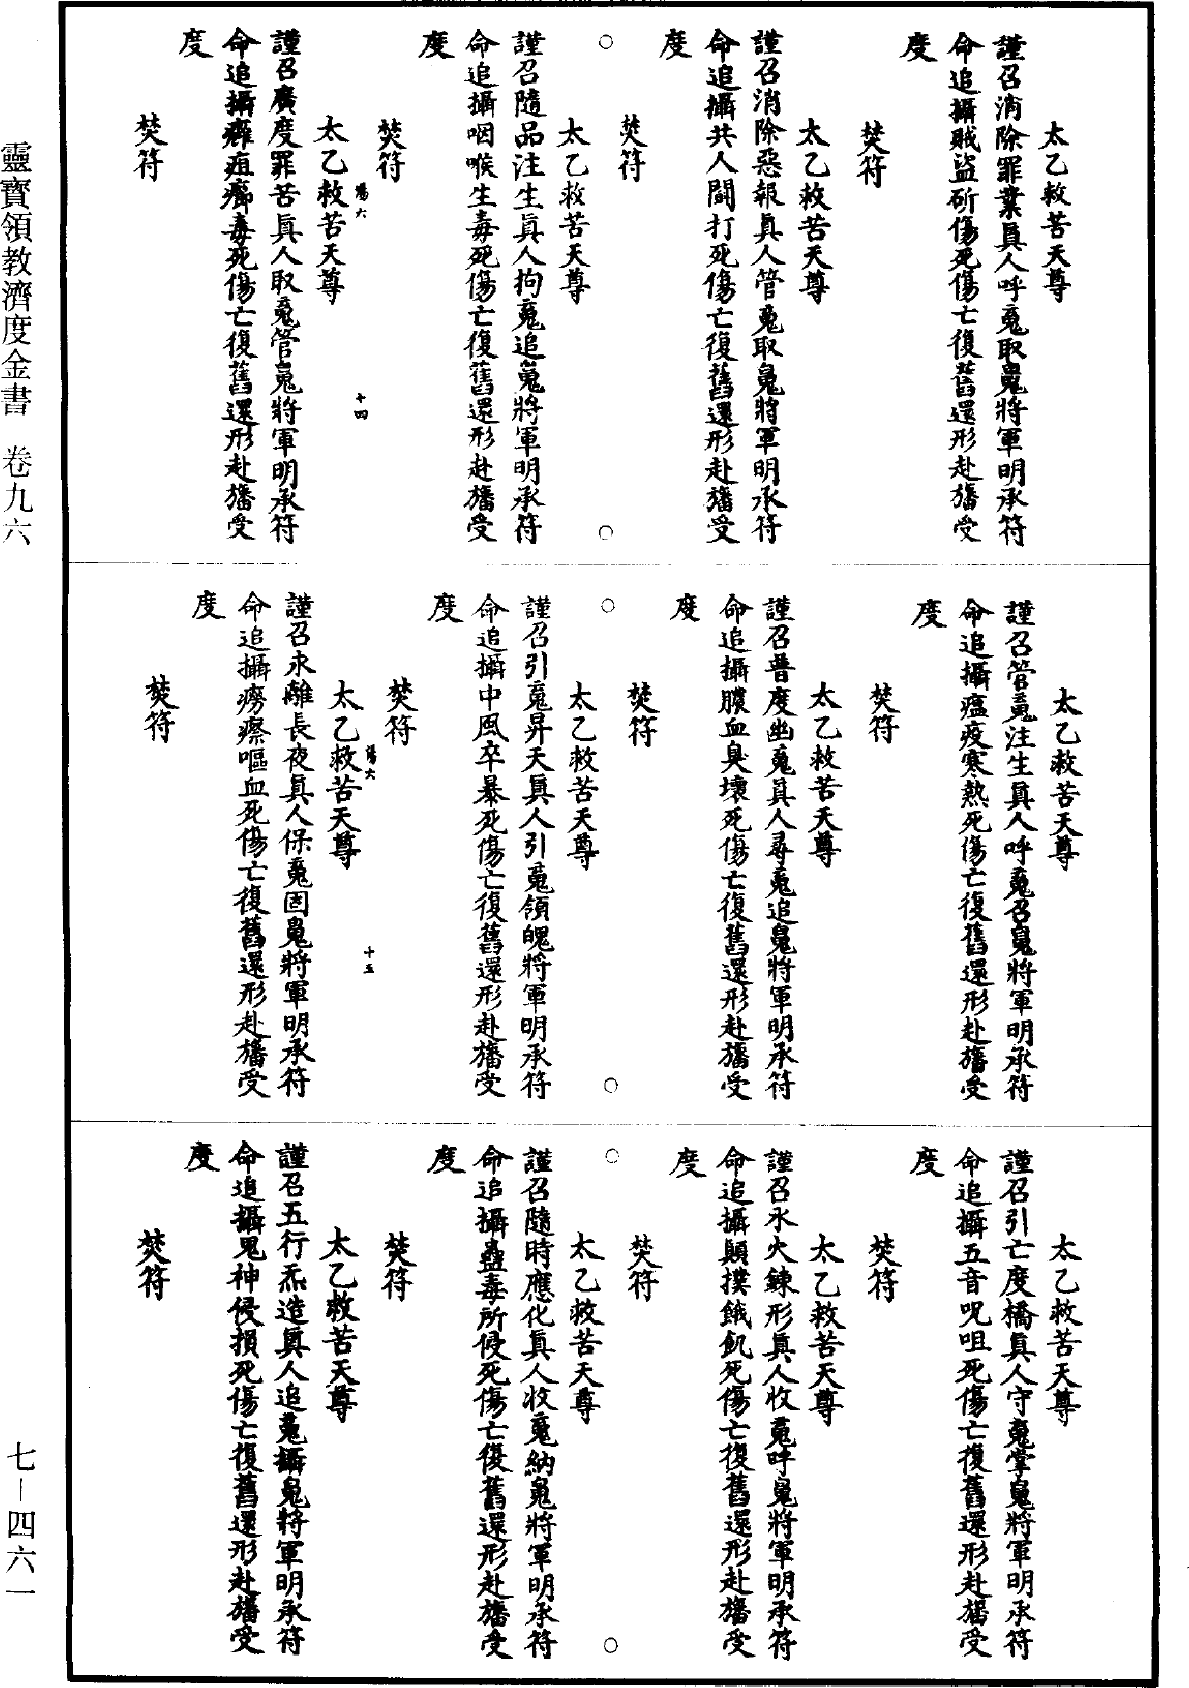 太乙救苦天尊
謹召消除罪業真人呼䰟取魄將軍明承符
命追攝賊盜斫傷死傷亡復舊還形赴旛受
度
焚符
太乙救苦天尊
謹召消除惡報真人管䰟取魄將軍明承符
命追攝共人鬪打死傷亡復舊還形赴旛受
度
焚符
太乙救苦天尊
謹召隨品注生真人拘䰟追魄將軍明承符
命追攝咽喉生毒死傷亡復舊還形赴旛受
度
焚符
太乙救苦天尊
謹召廣度罪苦真人取䰟管魄將軍明承符
命追攝癰疽癤毒死傷亡復舊還形赴旛受
度
焚符
太乙救苦天尊
謹召管䰟注生真人呼䰟召魄將軍明承符
命追攝瘟疫寒熱死傷亡復舊還形赴旛受
度
焚符
太乙救苦天尊
謹召普度幽䰟真人尋䰟追魄將軍明承符
命追攝膿血臭壞死傷亡復舊還形赴旛受
度
焚符
太乙救苦天尊
謹召引䰟昇天真人引䰟領魄將軍明承符
命追攝中風卒暴死傷亡復舊還形赴旛受
度
焚符
太乙救苦天尊
謹召永離長夜真人保䰟固魄將軍明承符
命追攝癆瘵嘔血死傷亡復舊還形赴旛受
度
焚符
太乙救苦天尊
謹召引亡度橋真人守䰟掌魄將軍明承符
命追攝五音呪咀死傷亡復舊還形赴旛受
度
焚符
太乙救苦天尊
謹召水火鍊形真人收䰟呼魄將軍明承符
命追攝顛撲餓飢死傷亡復舊還形赴旛受
度
焚符
太乙救苦天尊
謹召隨時應化真人收䰟納魄將軍明承符
命追攝蠱毒所侵死傷亡復舊還形赴旛受
度
焚符
太乙救苦天尊
謹召五行炁造真人追䰟攝魄將軍明承符
命追攝鬼神侵損死傷亡復舊還形赴旛受
度
焚符
陽六
十四
陽六
十五
靈寶領教濟度金書 卷九六
七－四六一